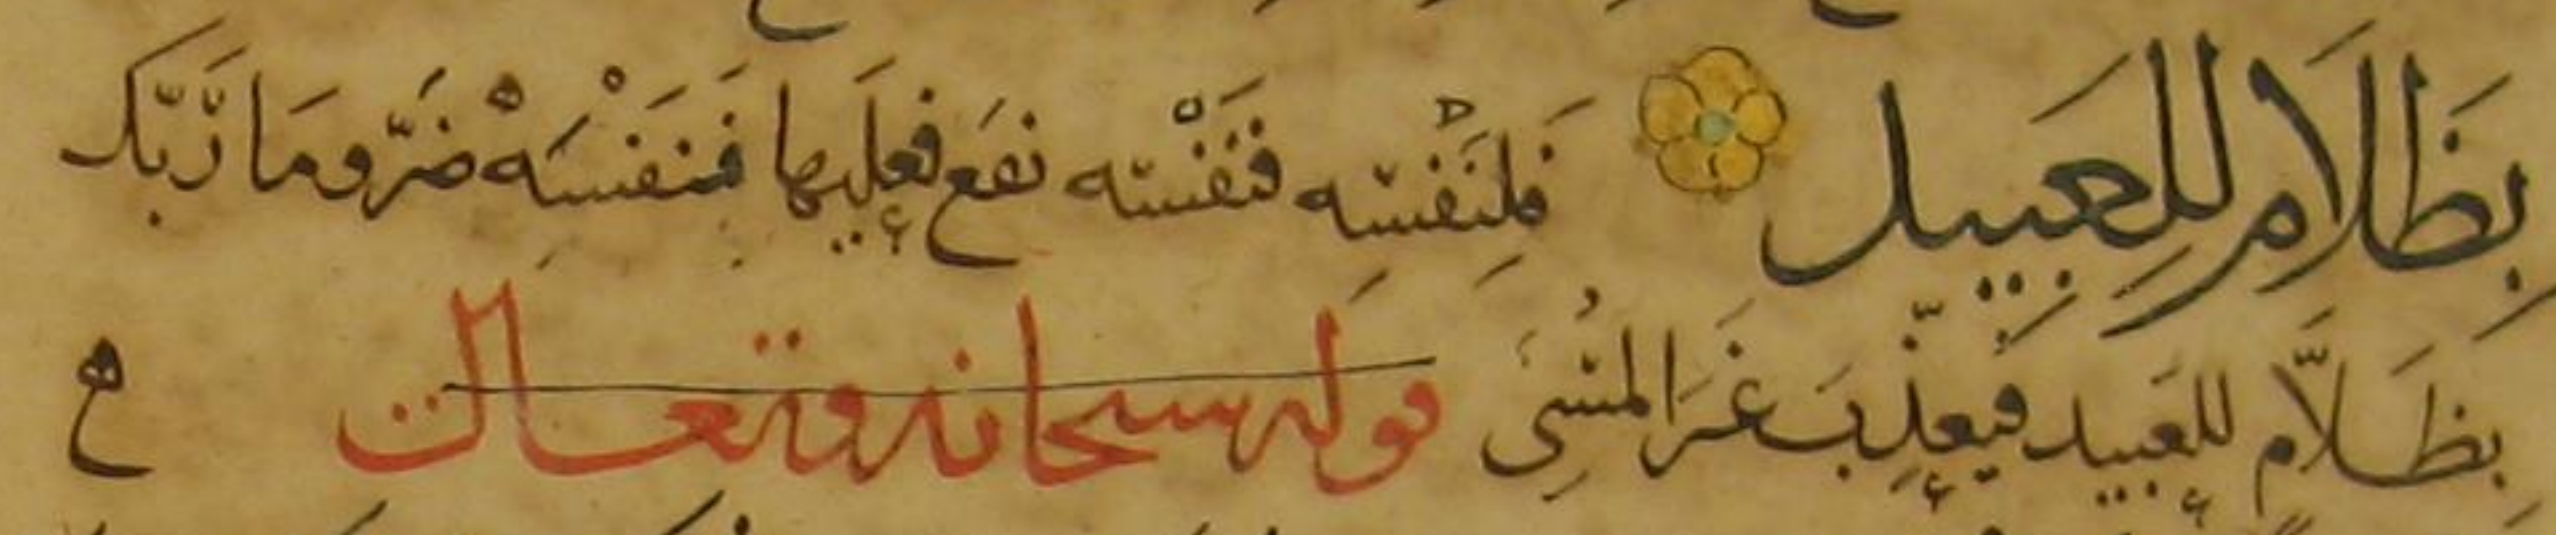 بِظَلَامٍ لِلعَبِيدِ فَلِنَفْسِه فنَفْسَه نفَع فعلَيها فَنَفْسَهْ ضَرّ ومَا رَبّك
بِظَلّامٍ للعَبيد فيعذّبَ غَيرَ المُسِيءِ قوله سبحانه وتعالى